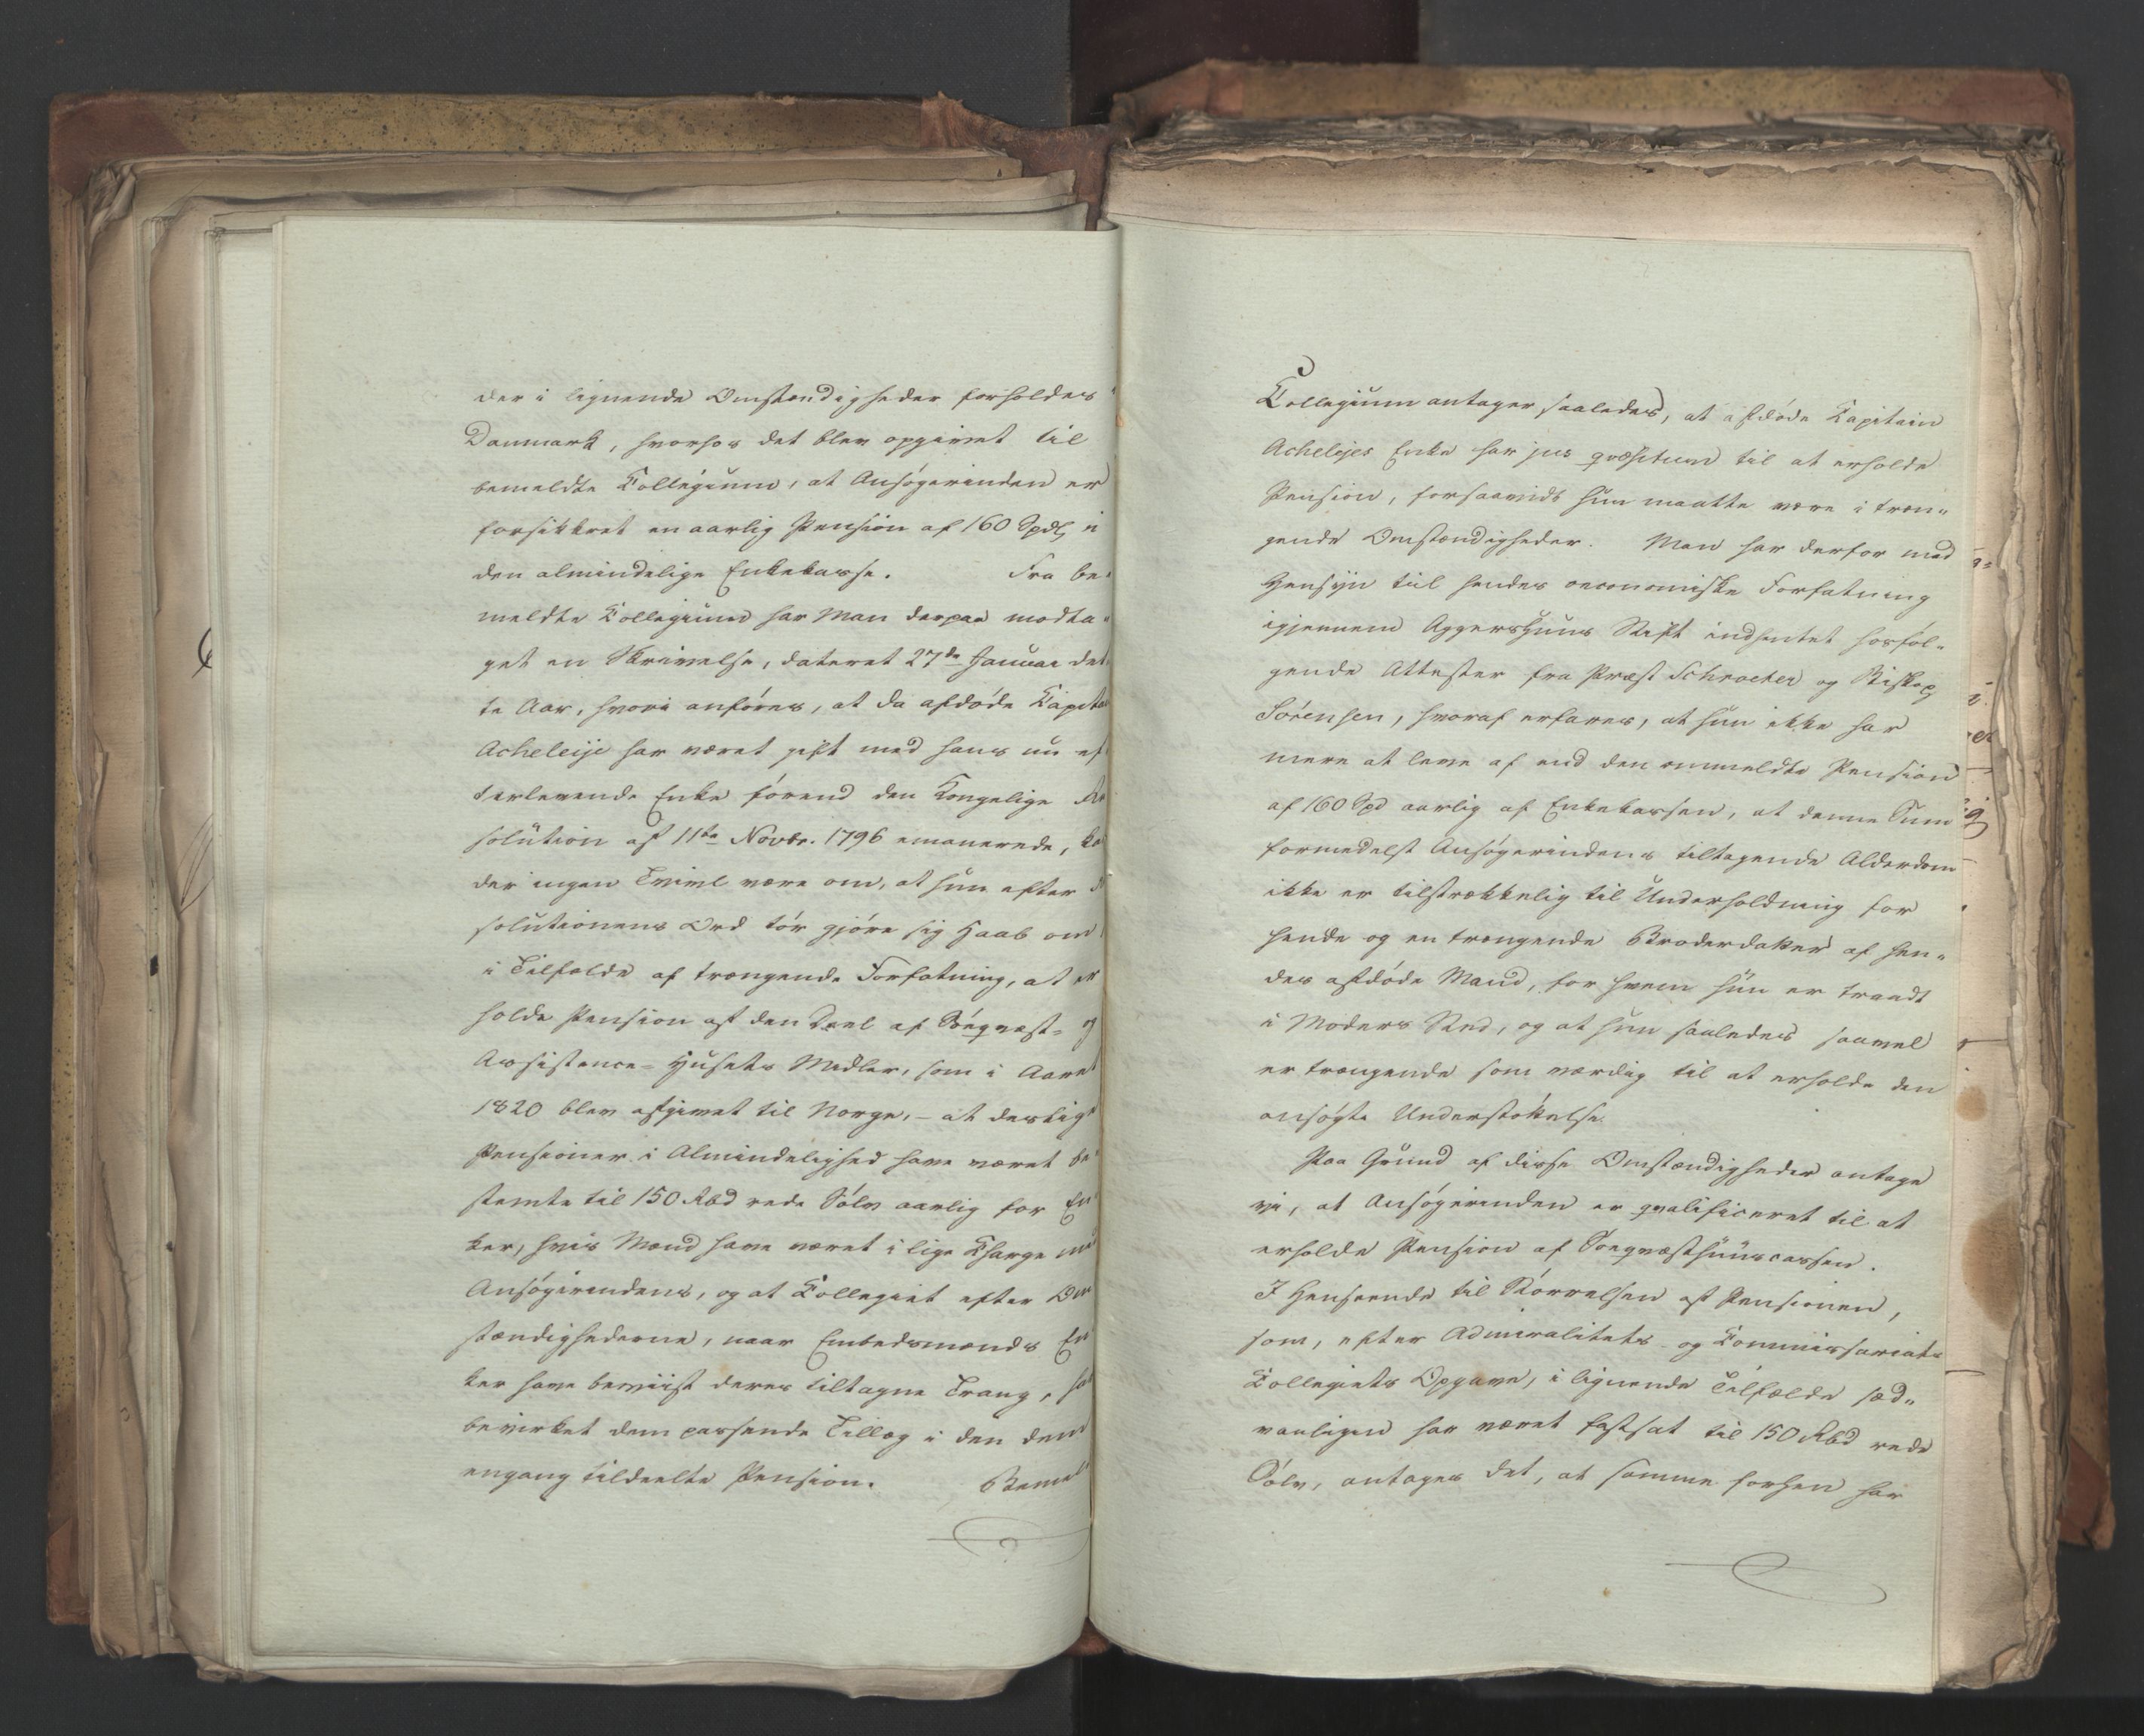 der i lignende Omstændigheder forholdes
Danmark, hvorhos det blev opgivet til
bemeldte Collegium, at Ansøgerinden er
forsikkret en aarlig Pension af 160 Spdl i
den almindelige Enkekasse. Fra be-
meldte Collegium har Man derpaa modta-
get en Skrivelse, dateret 27de Januar det-
te Aar, hvori anføres, at da afdøde Capita
Acheleije har været gift med hans nu ef-
terlevende Enke førend den Kongelige Re
solution af 11te Novbr. 1796 emanerede, ka
der ingen Tvivl være om, at hun efter
solutionens Ord tør gjøre sig Haab om
i Tilfælde af trængende Forfatning, at er
holde Pension af den Deel af Søeqvæst- og
Assistence-Husets Midler, som i Aaret
1820 blev afgivet til Norge, - at deslige
Pensioner i Almindelighed have været be-
stemte til 150 Rbd rede Sølv aarlig for En
ker, hvis Mænd have været i lige Charge med
Ansøgerindens, og at Collegiet efter Om
stændighederne, naar Embedsmænds En
ker have beviist deres tiltagne Trang, ha
bevirket dem passende Tillæg i den dem
engang tildeelte Pension. Bemel
Collegium antager saaledes, at afdøde Capitain
Achelejes Enke har jus qvæsitum til at erholde
Pension, forsaavidt hun maatte være i træn-
gende Omstændigheder. Man har derfor med
Hensyn til hendes oeconomiske Forfatning
igjennem Aggershuus Stift indhentet hosføl-
gende Attester fra Præst Schroeter og Biskop
Sørensen, hvoraf erfares, at hun ikke har
mere at leve af end den ommeldte Pension
af 160 Spd aarlig af Enkekassen, at denne Sum
formedelst Ansøgerindens tiltagende Alderdom
ikke er tilstrækkelig til Underholdning for
hende og en trængende Broderdatter af hen-
des afdøde Mand, for hvem hun er traadt
i Moders Sted, og at hun saaledes saavel
er trængende som værdig til at erholde den
ansøgte Understøttelse.
Paa Grund af disse Omstændigheder antage
vi, at Ansøgerinden er qvalificeret til at
erholde Pension af Søeqvæsthuuscassen.
I Henseende til Størrelsen af Pensionen,
som, efter Admiralitets- og Commissariats
Collegiets Opgave, i lignende Tilfælde sæd-
vanligen har været fastsat til 150 Rbd rede
Sølv, antages det, at samme forhen har